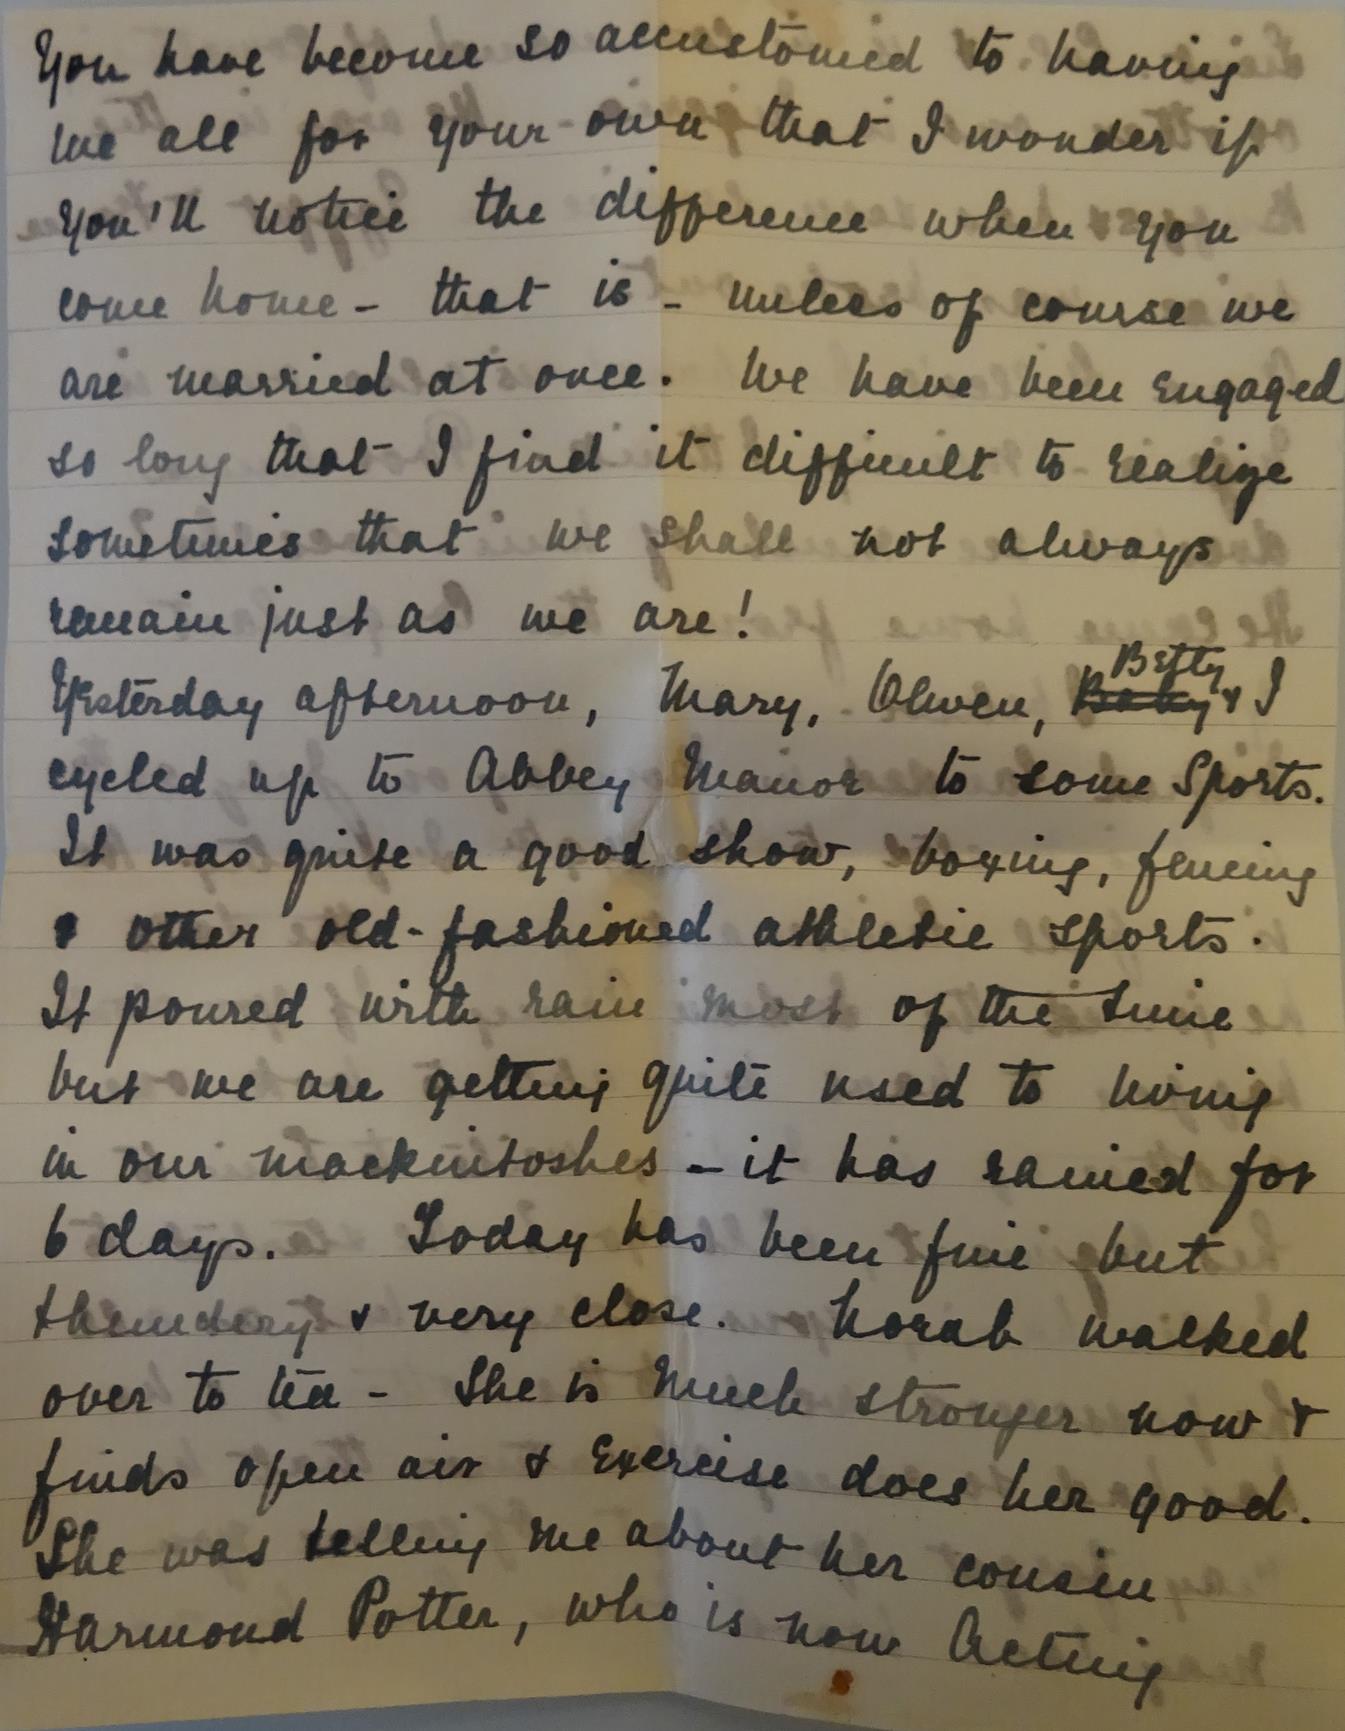 You have become so accustomed to having
me all for your own that I wonder if
you'll notice the difference when you
come home - that is - unless of course we
are married at once. We have been engaged
so long that I find it difficult to realize
sometimes that we shall not always
remain just as we are!
Yesterday afternoon, Mary, Olwen, Betty & I
cycled up to Abbey Manor to some Sports.
It was quite a good show, boxing, fencing
& other old-fashioned athletic sports.
It poured with rain most of the time
but we are getting quite used to living
in our mackintoshes - it has rained for
6 days. Today has been fine but
thundery & very close. Norah walked
over to tea - She is much stronger now &
finds open air & exercise does her good.
She was telling me about her cousin
Harmond Potter, who is now Acting